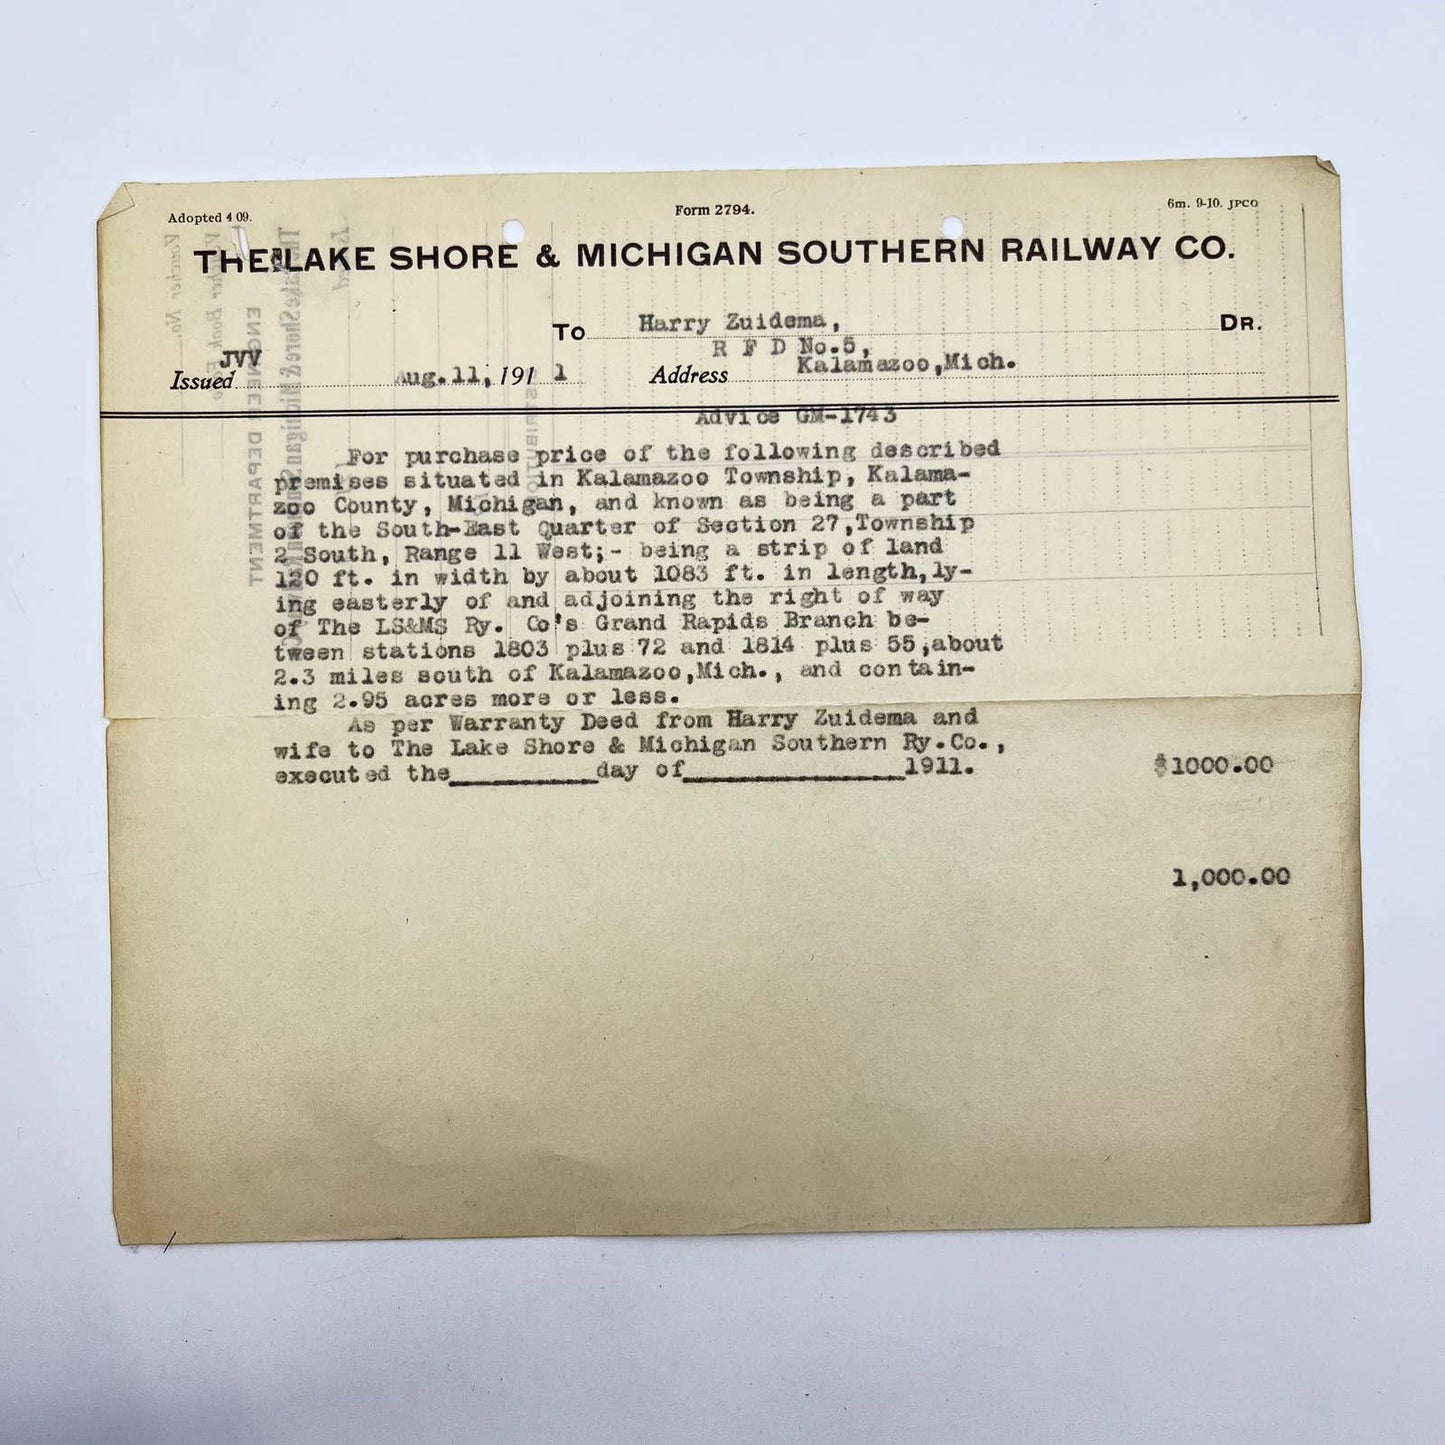 Adopted 4 09.
Form 2794.
6m. 9-10. JPCO
THE LAKE SHORE & MICHIGAN SOUTHERN RAILWAY CO.
To Harry Zuidema, DR.
R F D No.5,
JVV
Issued Aug.11, 191 1 Address Kalamazoo,Mich.
Advice GM-1743
For purchase price of the following described
premises situated in Kalamazoo Township, Kalama-
zoo County, Michigan, and known as being a part
of the South-East Quarter of Section 27,Township
2 South, Range 11 West;- being a strip of land
120 ft. in width by about 1083 ft. in length,ly-
ing easterly of and adjoining the right of way
of The LS&MS Ry. Co's Grand Rapids Branch be-
tween stations 1803 plus 72 and 1814 plus 55,about
2.3 miles south of Kalamazoo,Mich., and contain-
ing 2.95 acres more or less.
As per Warranty Deed from Harry Zuidema and
wife to The Lake Shore & Michigan Southern Ry.Co.,
executed the__________day of_______________1911. $1000.00
1,000.00
Issued
The Lake Shore & Michigan
ENGINEER DEPARTMENT
Voucher No.